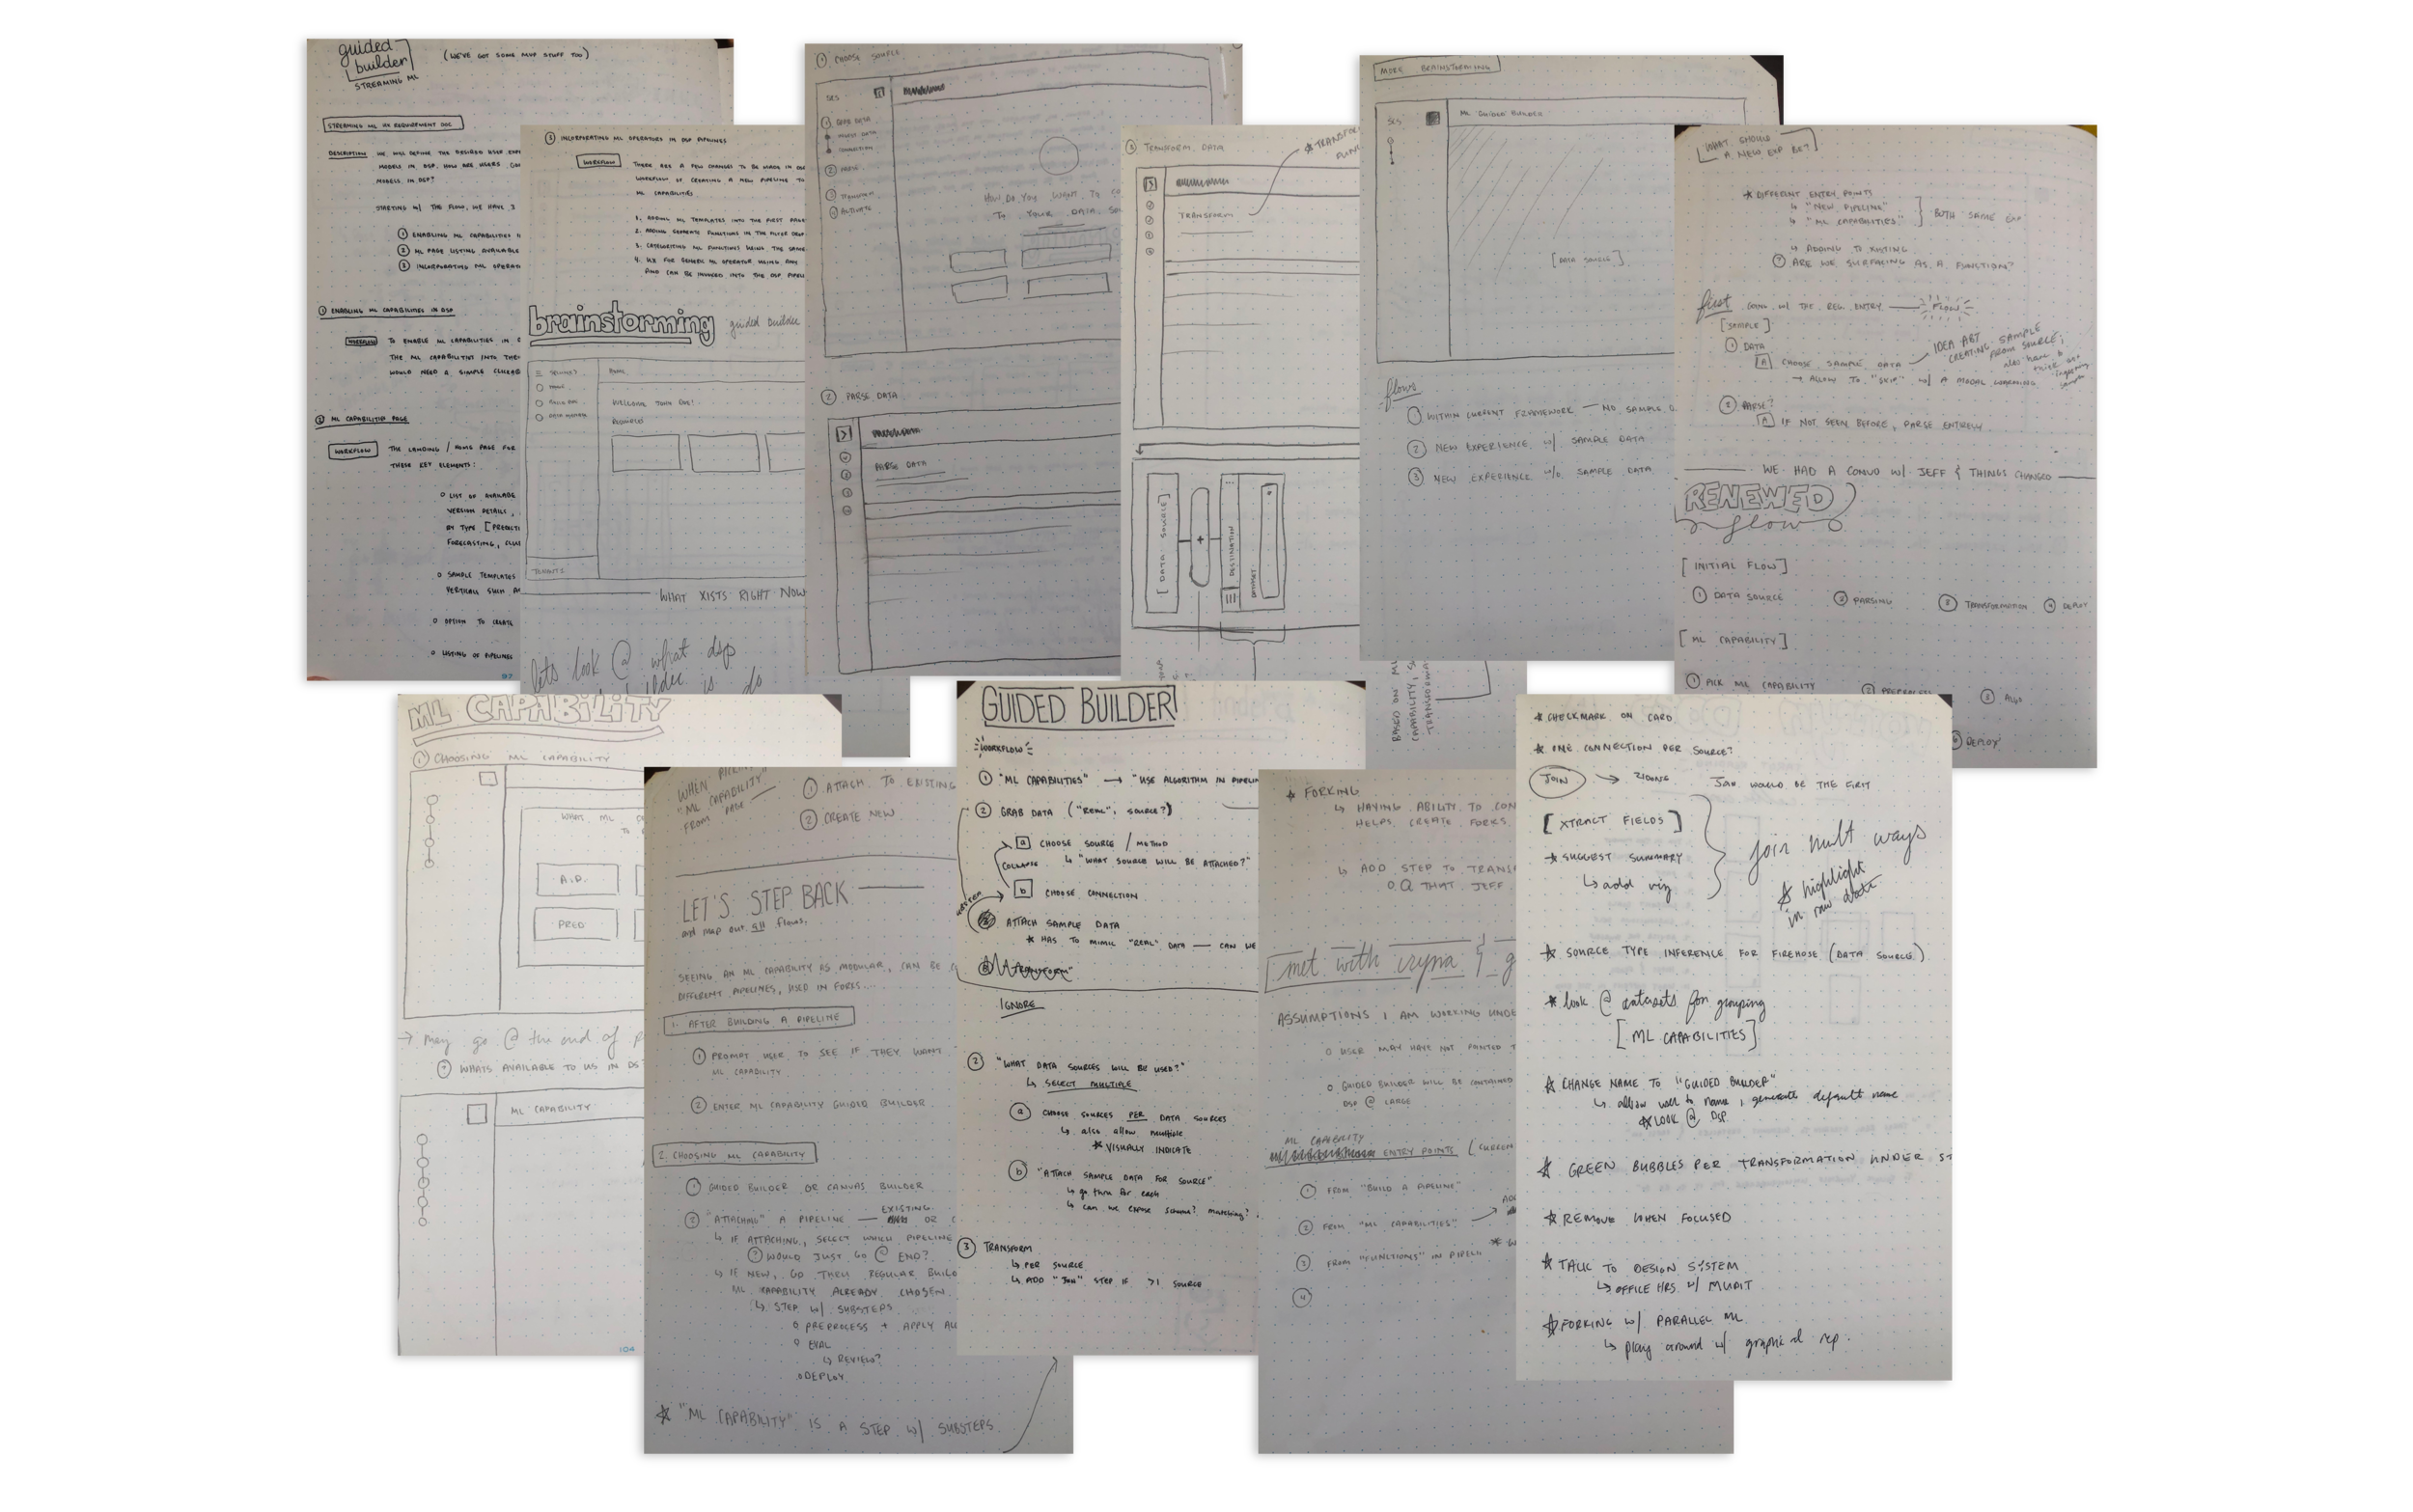 guided
builder
STREAMING ML
(WE'VE GOT SOME MVP STUFF TOO)
STREAMING ML UX REQUIREMENT DOC
DESCRIPTION WE WILL DEFINE THE DESIRED USER
MODELS IN DSP. HOW ARE USERS
MODELS IN DSP?
STARTING W/ THE FLOW, WE HAVE 3
1 ENABLING ML CAPABILITIES
2 ML PAGE LISTING AVAILABLE
3 INCORPORATING ML
1 ENABLING ML CAPABILITIES IN DSP
WORKFLOW TO ENABLE ML CAPABILITIES IN
THE ML CAPABILITIES INTO
WOULD NEED A SIMPLE
2 ML CAPABILITIES PAGE
WORKFLOW THE LANDING / HOME PAGE FOR
THESE KEY ELEMENTS:
O LIST OF AVAILABLE
VERSION DETAILS,
BY TYPE [
FORECASTING,
O SAMPLE TEMPLATES
VERTICALS SUCH
O OPTION TO CREATE
O LISTING OF PIPELINES
97
3 INCORPORATING ML OPERATORS IN DSP PIPELINES
WORKFLOW THERE ARE A FEW CHANGES TO BE MADE IN
WORKFLOW OF CREATING A NEW PIPELINE TO
ML CAPABILITIES
1. ADDING ML TEMPLATES INTO THE FIRST PAGE
2. ADDING SEPARATE FUNCTIONS IN THE FILTER
3. CATEGORIZING ML FUNCTIONS USING THE SAME
4. UX FOR GENERIC ML OPERATOR USING
AND CAN BE INVOKED INTO THE DSP
brainstorming guided builder
HOME
WELCOME JOHN DOE!
TENANTS
WHAT XISTS RIGHT NOW
lets look @ what dsp
builder is do
1 CHOOSE SOURCE
SCS
HOW DO YOU WANT TO
TO YOUR DATA
2 PARSE
3 TRANSFORM
4 ACTIVATE
2 PARSE DATA
PARSE DATA
3 TRANSFORM DATA
TRANSFORM
[DATA SOURCE]
+
DESTINATION
DATASET
MORE BRAINSTORMING
SCS ML GUIDED BUILDER
[DATA SOURCE]
flows
1 WITHIN CURRENT FRAMEWORK — NO SAMPLE
2 NEW EXPERIENCE W/ SAMPLE DATA
3 NEW EXPERIENCE W/O SAMPLE DATA
BASED ON
CAPABILITY,
WHAT SHOULD
A NEW EXP BE?
* DIFFERENT ENTRY POINTS
↳ "NEW PIPELINE"
↳ "ML CAPABILITIES" } BOTH SAME EXP
↳ ADDING TO XISTING
? ARE WE SURFACING AS A FUNCTION?
first GOING W/ THE REG. ENTRY — FLOW
[SAMPLE]
1 DATA
A CHOOSE SAMPLE DATA
IDEA ABT
CREATING SAMPLE
FROM SOURCE;
→ ALLOW TO "SKIP" W/ A MODAL WARNING
2 PARSE?
A IF NOT SEEN BEFORE, PARSE ENTIRELY
WE HAD A CONVO W/ JEFF & THINGS CHANGED
RENEWED
flow
[INITIAL FLOW]
1 DATA SOURCE 2 PARSING 3 TRANSFORMATION 4 DEPLOY
[ML CAPABILITY]
1 PICK ML CAPABILITY 2 PREPROCESS 3 ALGO
DEPLOY
ML CAPABILITY
1 CHOOSING ML CAPABILITY
WHAT ML
A.D.
PRED
→ may go @ the end of
? WHATS AVAILABLE TO US IN
ML CAPABILITY
104
WHEN PICKING
"ML CAPABILITY"
FROM PAGE
1 ATTACH TO EXISTING
2 CREATE NEW
LET'S STEP BACK
and map out all flows.
SEEING AN ML CAPABILITY AS MODULAR, CAN BE
DIFFERENT PIPELINES, USED IN FORKS...
1. AFTER BUILDING A PIPELINE
1 PROMPT USER TO SEE IF THEY WANT
ML CAPABILITY
2 ENTER ML CAPABILITY GUIDED BUILDER
2. CHOOSING ML CAPABILITY
1 GUIDED BUILDER OR CANVAS BUILDER
2 "ATTACHING" A PIPELINE — EXISTING OR
↳ IF ATTACHING, SELECT WHICH PIPELINE
? WOULD JUST GO @ END?
↳ IF NEW, GO THRU REGULAR
ML CAPABILITY ALREADY CHOSEN.
↳ STEP W/ SUBSTEPS
O PREPROCESS + APPLY
O EVAL
↳ REVIEW?
O DEPLOY
* "ML CAPABILITY" IS A STEP W/ SUBSTEPS
GUIDED BUILDER
WORKFLOW
1 "ML CAPABILITIES" → "USE ALGORITHM IN
2 GRAB DATA ("REAL", SOURCE?)
a CHOOSE SOURCE / METHOD
COLLAPSE ↳ "WHAT SOURCE WILL BE ATTACHED?"
b CHOOSE CONNECTION
ATTACH SAMPLE DATA
* HAS TO MIMIC "REAL" DATA — CAN WE
IGNORE
2 "WHAT DATA SOURCES WILL BE USED?"
↳ SELECT MULTIPLE
a CHOOSE SOURCES PER DATA SOURCES
↳ also allow multiple
* VISUALLY INDICATE
b "ATTACH SAMPLE DATA FOR SOURCE"
↳ go thru for each
↳ can we expose schema? matching?
3 TRANSFORM
↳ PER SOURCE
↳ ADD "JOIN" STEP IF >1 SOURCE
* FORKING
↳ HAVING ABILITY TO
HELPS CREATE FORKS
↳ ADD STEP TO
THAT JEFF
met with iryna &
ASSUMPTIONS I AM WORKING
O USER MAY HAVE NOT POINTED
O GUIDED BUILDER WILL BE CONTAINED
DSP @ LARGE
ML CAPABILITY
ENTRY POINTS
1 FROM "BUILD A PIPELINE"
2 FROM "ML CAPABILITIES"
3 FROM "FUNCTIONS" IN
4
* CHECKMARK ON CARD
* ONE CONNECTION PER SOURCE?
JOIN → Join would be the first
[XTRACT FIELDS]
* SUGGEST SUMMARY
↳ add viz
join mult ways
* highlight
in raw data
* SOURCE TYPE INFERENCE FOR FIREHOSE (DATA SOURCE)
* look @ datasets for grouping
[ML CAPABILITIES]
* CHANGE NAME TO "GUIDED BUILDER"
↳ allow user to name, generate default name
* LOOK @ DSP
* GREEN BUBBLES PER TRANSFORMATION UNDER
* REMOVE WHEN FOCUSED
* TALK TO DESIGN SYSTEM
↳ OFFICE HRS W/
* FORKING W/ PARALLEL ML
↳ play around w/ graphical rep.